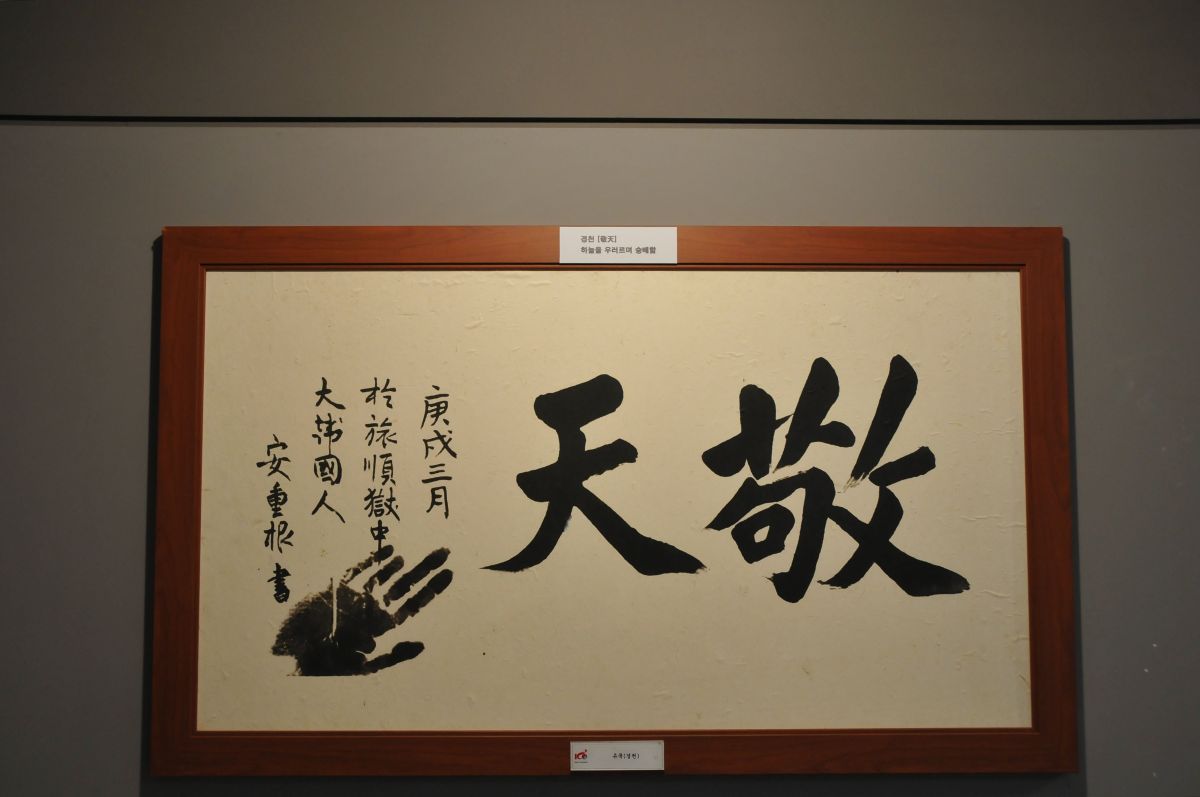 경천 [敬天]
하늘을 우러르며 숭배함
敬天
庚戌三月
於旅順獄中
大韓國人
安重根 書
유묵(경천)